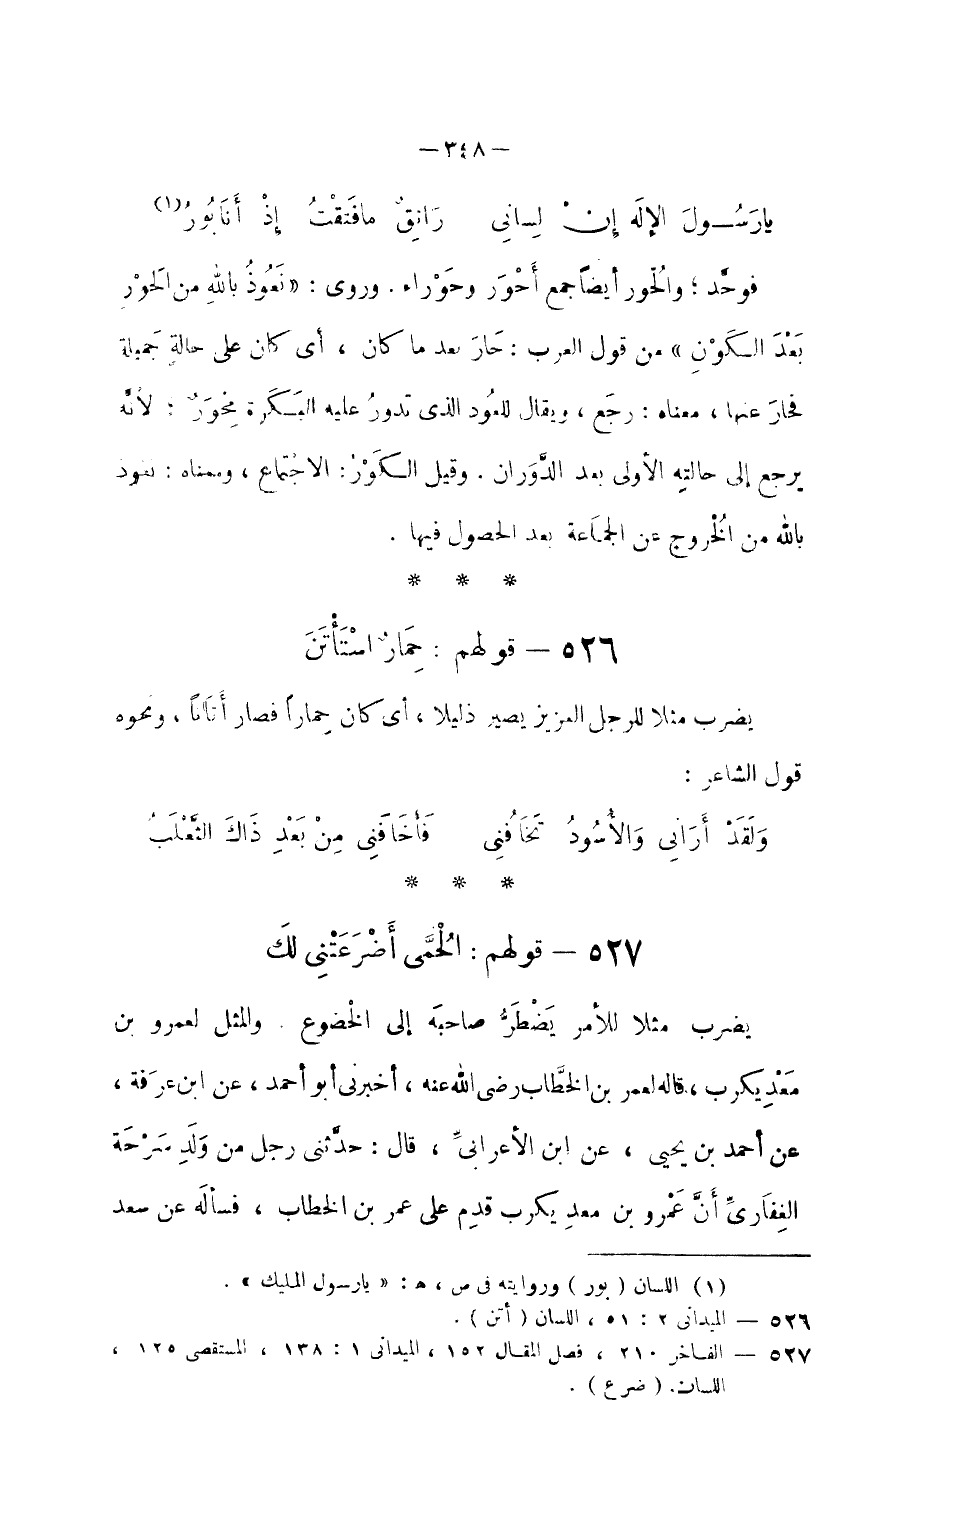 — ٣٤٨ —
يارَسُـولَ الإلَه إِنْ لِسانى رَاتِقٌ مافَتَقْتُ إِذْ أَنَا بُورُ (١)
فوحَّد ؛ والُحور أيضاً جمع أَحْوَر وحَوْراء . وروى : « نَعُوذُ باللهِ من الَحوْرِ
بَعْدَ الـكَوْنِ » من قول العرب : حَارَ بعد ما كان ، أى كان على حالةٍ جَميلة
فحارَ عنها ، معناه : رجَع ، ويقال للعُود الذى تدورُ عليه البَـكَرة مِحْوَرٌ ؛ لأنَّه
يرجع إلى حالتِه الأولى بعد الدَّوَران . وقيل الـكَوْرُ : الاجتُماع ، ومعناه : نعوذ
بالله من الُخْروج عن الجمَاعة بعد الحصول فيها .
* * *
٥٢٦ — قولهم : حِمَارٌ اسْتَأْتَنَ
يضرب مثلا للرجل العزيز يصير ذليلا ، أى كان حِماراً فصار أَتَاناً ، ونحوه
قول الشاعر :
وَلَقَدْ أَرَانِى وَالأُسُودُ تَخَافُنِى فَأَخَافَنِى مِنْ بَعْدِ ذَاكَ الثَّعْلَبُ
* * *
٥٢٧ — قولهم : الُحْمَّى أَضْرَعَتْنِى لكَ
يضرب مثلا للأمر يَضْطَرُّ صاحبَه إلى الْخضوع . والمثل لعمرو بن
مَعْدِيكرب ، قاله لعمر بن الخطَّاب رضى الله عنه ، أخبرنى أبو أحمد ، عن ابن عرَفة ،
عن أحمد بن يحيى ، عن ابن الأعرابىِّ ، قال : حدَّثنى رجل من وَلَدِ سَرْحَة
الغِفَارىِّ أَنَّ عَمْرو بن معدِ يكرب قدِم على عمر بن الخطاب ، فسألَه عن سعد
(١) اللسان ( بور ) وروايته فى ص ، ه : « يارسول المليك » .
٥٢٦ — الميدانى ٢ : ٥١ ، اللسان ( أتن ) .
٥٢٧ — الفـاخر ٢١٠ ، فصل المقـال ١٥٢ ، الميدانى ١ : ١٣٨ ، المستقصى ١٢٥ ،
اللسان. ( ضرع ) .